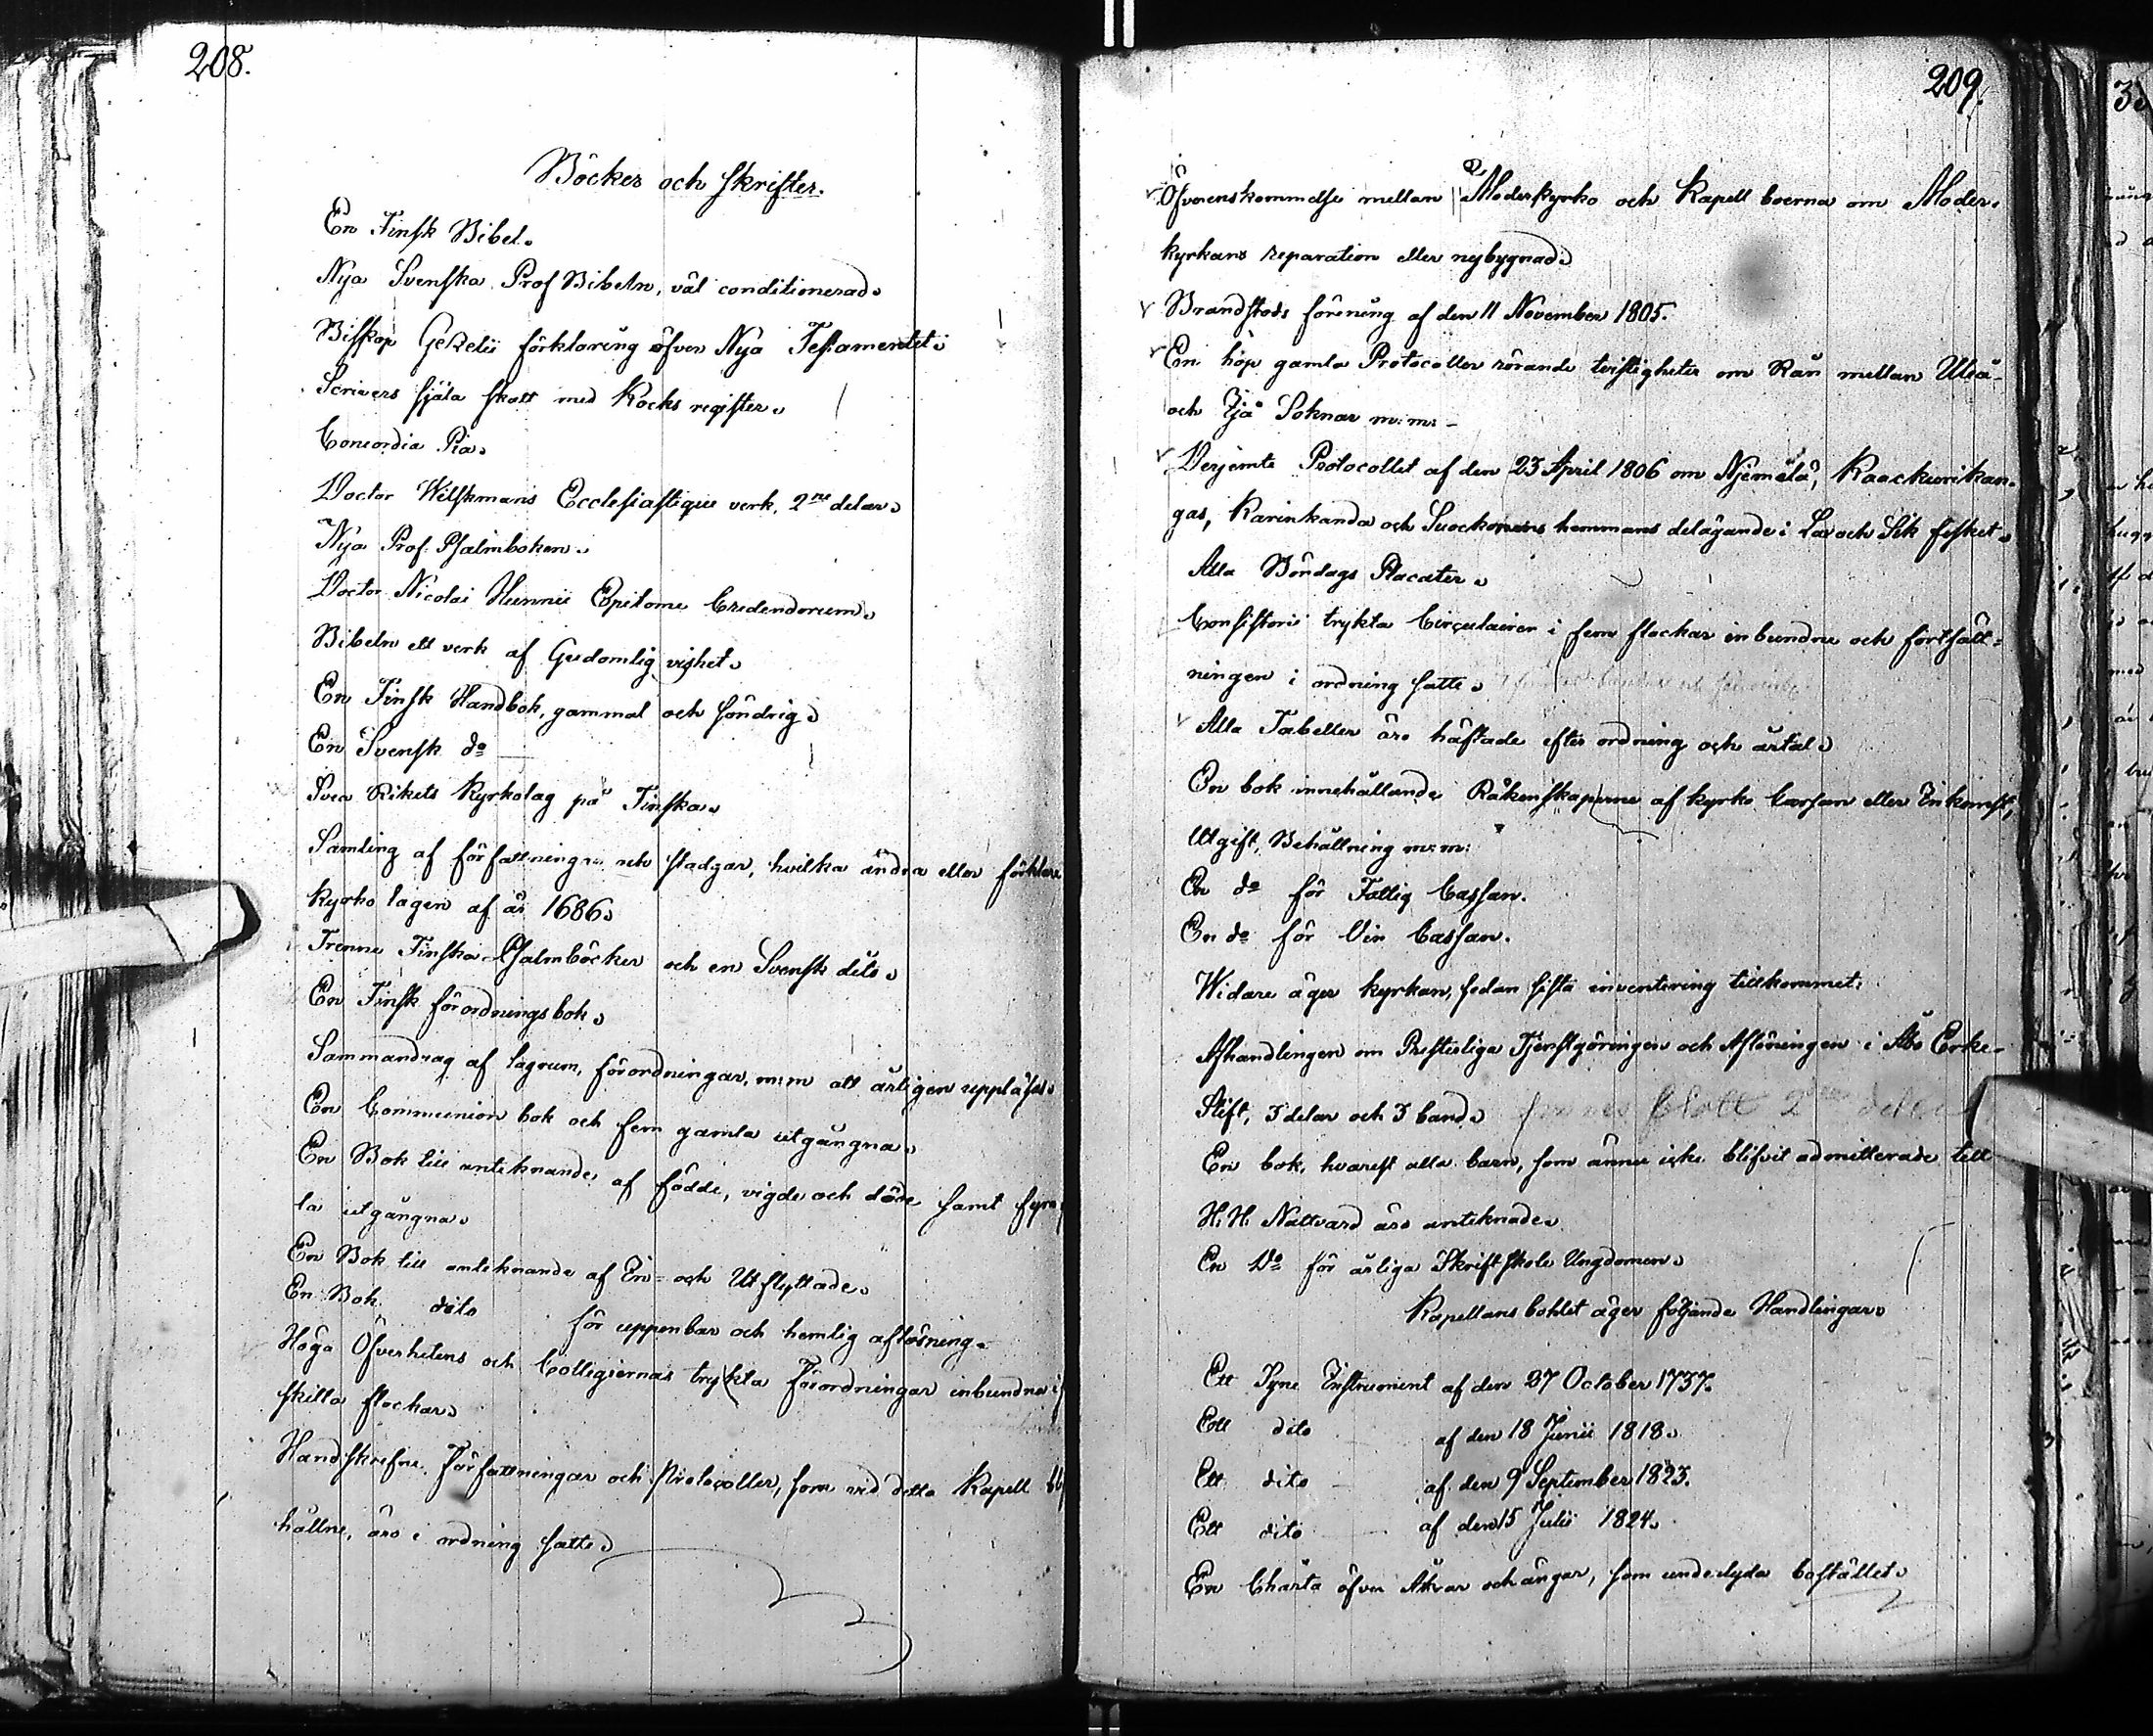 208.
Böcker och skrifter.
En Finsk Bibel.
Nya Svenska Prof Bibeln, väl conditionerad.
Biskop Gezelii förklaring öfver Nya Testamentet.
Scrivers själa skatt med Kocks register.
Concordia Pia.
Doctor Wilskmans Ecclesiastique verk, 2ne delar.
Nya Prof. Psalmboken.
Doctor Nicolai Hunnii Epitome Credendorum.
Bibeln ett verk af Gudomlig vishet.
En Finsk Handbok, gammal och söndrig.
En Svensk do
Svea Rikets Kyrkolag på Finska.
Samling af författningar och stadgar, hvilka ändra eller förklara
Kyrko lagen af år 1686.
Trenne Finska Psalmböcker och en Svensk dito.
En Finsk förordningsbok.
Sammandrag af lagrum, förordningar, m:m att årligen uppläsas.
En Communion bok och fem gamla utgångna.
En Bok till anteknande af födde, vigde och döde samt fyra
la utgångna.
En Bok till anteknande af In- och Utflyttade.
En Bok dito för uppenbar och hemlig aflösning.
Höga Öfverhetens och Collegiernas trykta Förordningar inbundna i
skilta flockar.
Handskrefne Författningar och Protocoller, som vid detta Kapell
hållne, äro i ordning satte.
209.
Öfverenskommelse mellan Moderkyrko och Kapell boerna om Moder-
kyrkans reparation eller nybygnad.
Brandstods förening af den 11 November 1805.
En höp gamla Protocoller rörande tvistigheter om Rån mellan Uleå-
och Ijå Soknar m:m:
Derjemte Protocollet af den 23 April 1806 om Njemälä, Kaackurikan-
gas, Karinkanda och Suockonens hemmans delägande i Lax och Sik fisket.
Alla Böndags Placater.
Consistorii trykta Circulairer i fem flockar inbundne och fortsätt-
ningen i ordning satte.
Alla Tabeller äro häftade efter ordning och årtal.
En bok innehållande Räkenskaperne af kyrko Cassan eller Inkomst,
Utgift, Behållning m:m:
En do för Fattig Cassan.
En do för Vin Cassan.
Widare äger kyrkan, sedan sista inventering tillkommet:
Afhandlingen om Presterliga Tjenstgöringen och Aflöningen i Åbo Erke-
Stift, 3 delar och 3 band. finnes blott 2 delar
En bok, hvarest alla barn, som ännu icke blifvit admitterade till
H. H. Nattvard äro anteknade.
En Do för årliga Skriftskole Ungdomen.
Kapellans bohlet äger följande Handlingar.
Ett Syne Instrument af den 27 October 1737.
Ett dito af den 18 Junii 1818.
Ett dito af den 9 September 1823.
Ett dito af den 15 Julii 1824.
En Charta öfver Åkrar och ängar, som underlyda bostället.